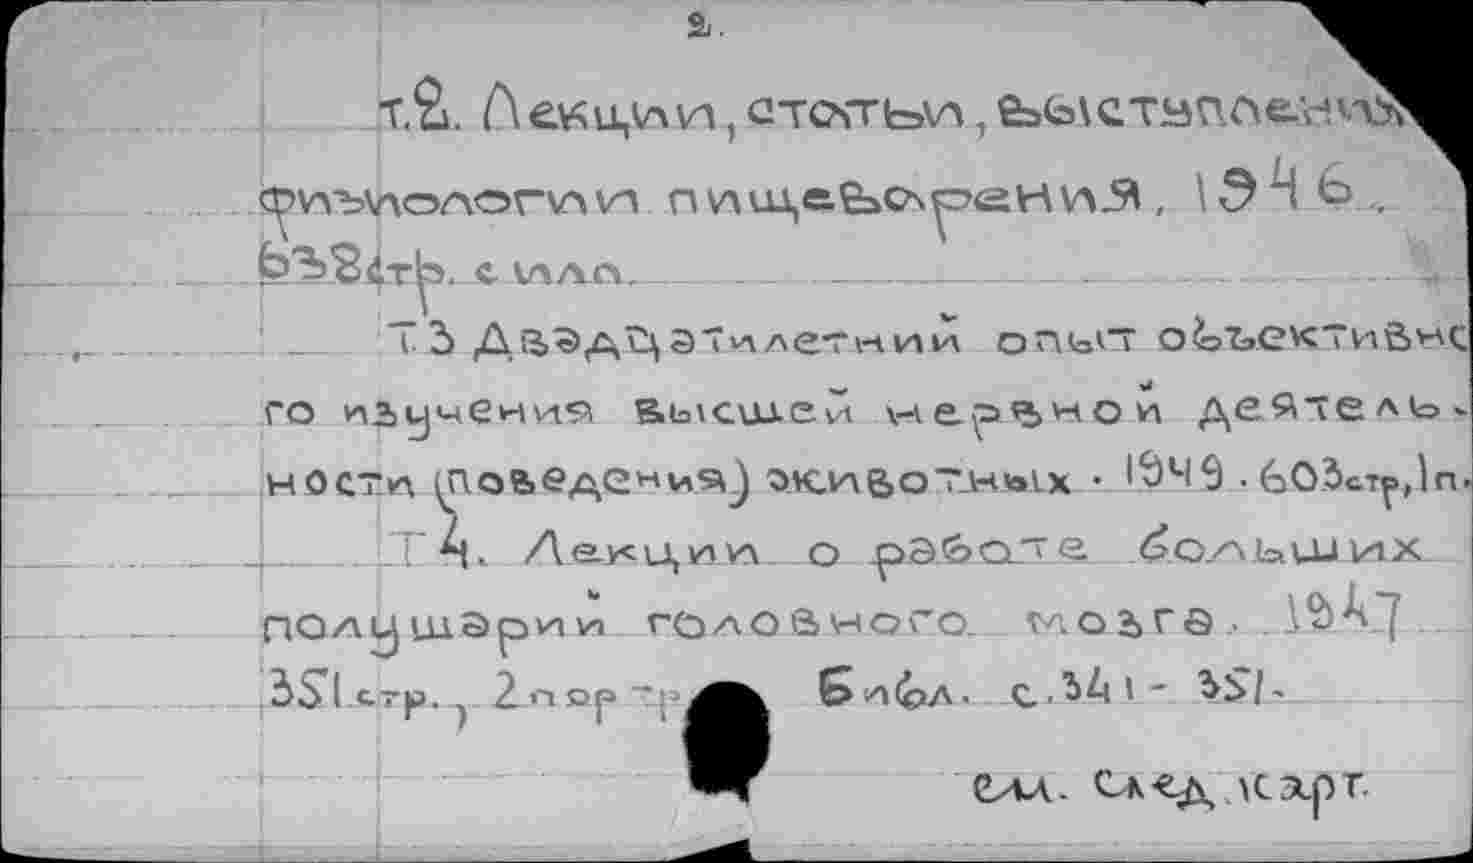 2.
т.2. Лекции, статьи, выступления
физиологии пищеварения, 1946.
632стр. с илл.
Т.3 Двадцатилетний опыт объективно
го изучения высшей нервной деятель-
ности (поведения) животных. 1949. 603стр, 1п.
Т 4. Лекции о работе больших
полушарий головного мозга. 1947
351 стр., 2 порт Библ. с. 341- 351.
см. след карт.